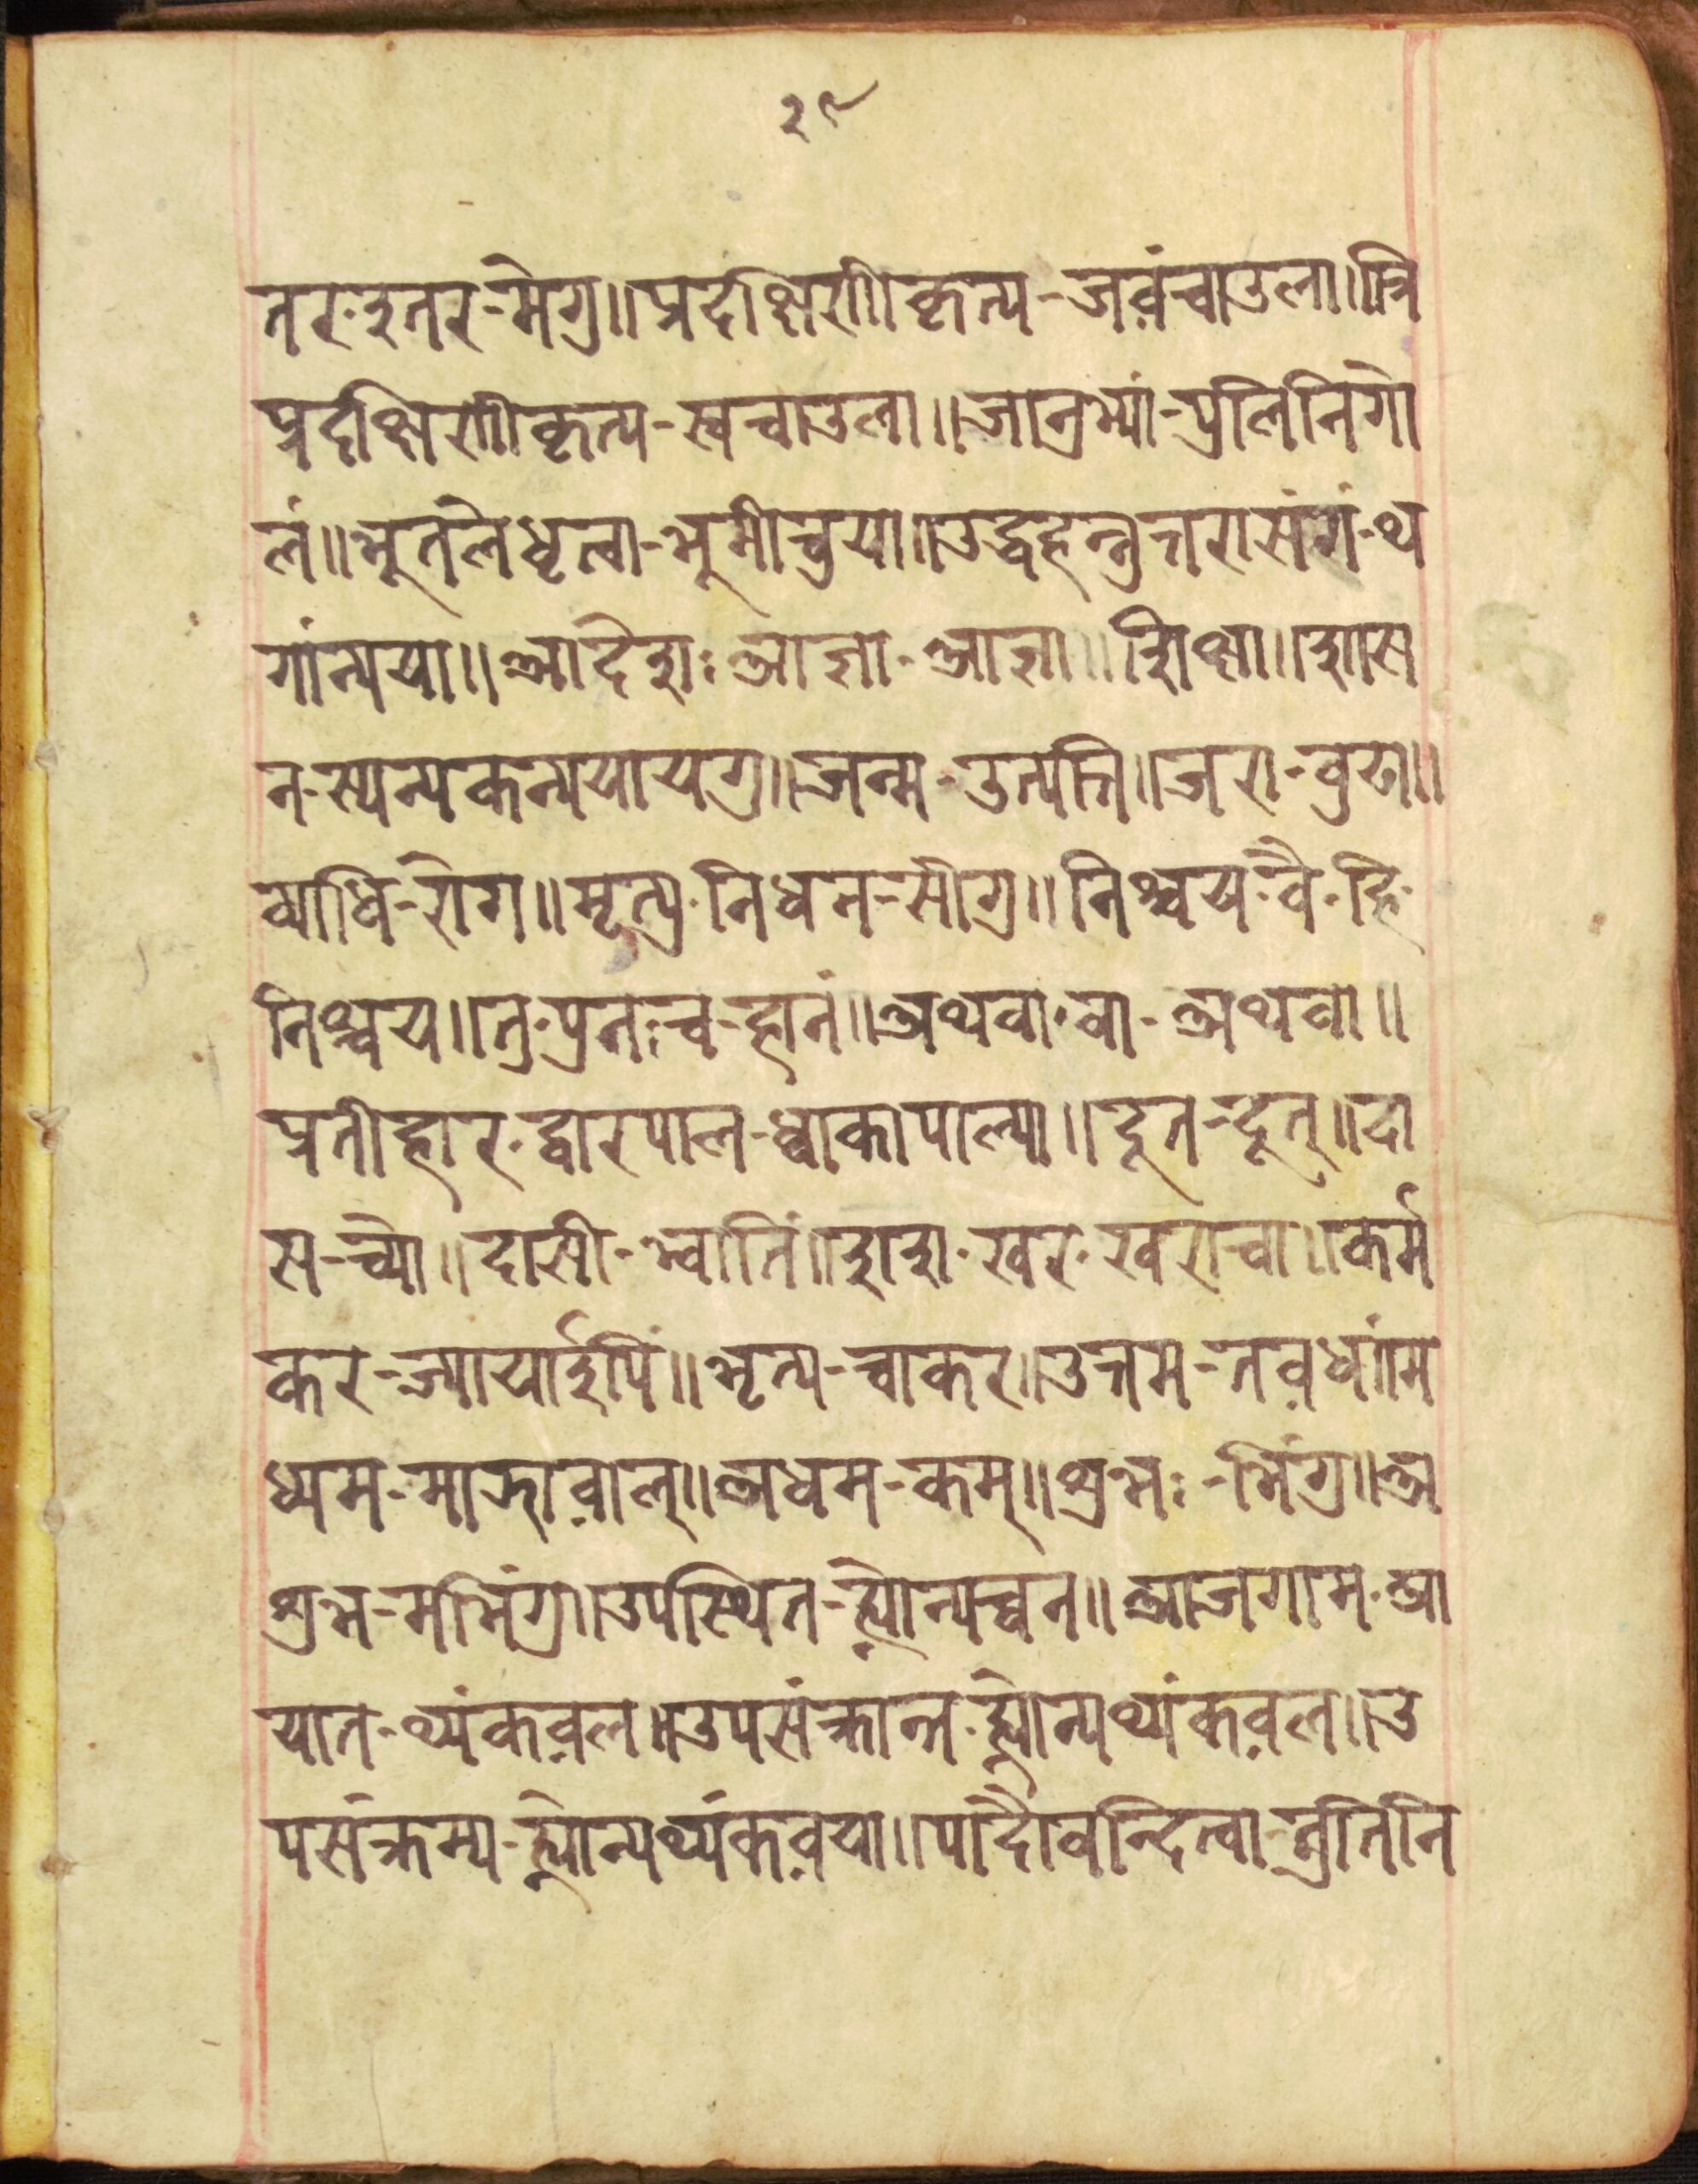 २९
तर-इतर-मेगु॥प्रदक्षिणीकृत्य-जवंचाउला॥त्रि
प्रदक्षिणीकृत्य-स्वचाउला॥जानुभ्यां-पुलिनिगो
लं॥भूतलेधृत्वा-भूमीचुया॥उद्वहन्नुत्तरासंगं-थ
गांन्यया॥आदेशः आज्ञा-आज्ञा॥शिक्षा॥शास
न-स्यन्यकन्ययायगु॥जन्म-उत्पत्ति॥जरा-वुढा॥
व्याधि-रोग॥मृत्यु-निधन-सीगु॥निश्चय-वै-हि-
निश्चय॥तु-पुनःच-हानं॥अथवा-वा-अथवा॥
प्रतीहार-द्वारपाल-ध्वाकापाल्या॥दूत-दूत्॥दा
स-च्यो॥दासी-भ्वातिं॥शश-खर-खराचा॥कर्म
कर-ज्यायाईपिं॥भृत्य-चाकर॥उत्तम-तव़धांम
ध्यम-माझाव़ाल्॥अधम-कम्॥शुभः-भिंगु॥अ
शुभ-मभिंगु॥उपस्थित-ह्योन्यच्वन॥आजगाम-आ
यात-थ्यंकव़ल॥उपसंक्रान्त-ह्योन्यथ्यंकव़ल॥उ
पसंक्रम्य-ह्योन्यथ्यंकव़या॥पादौवन्दित्वा-तुतिनि